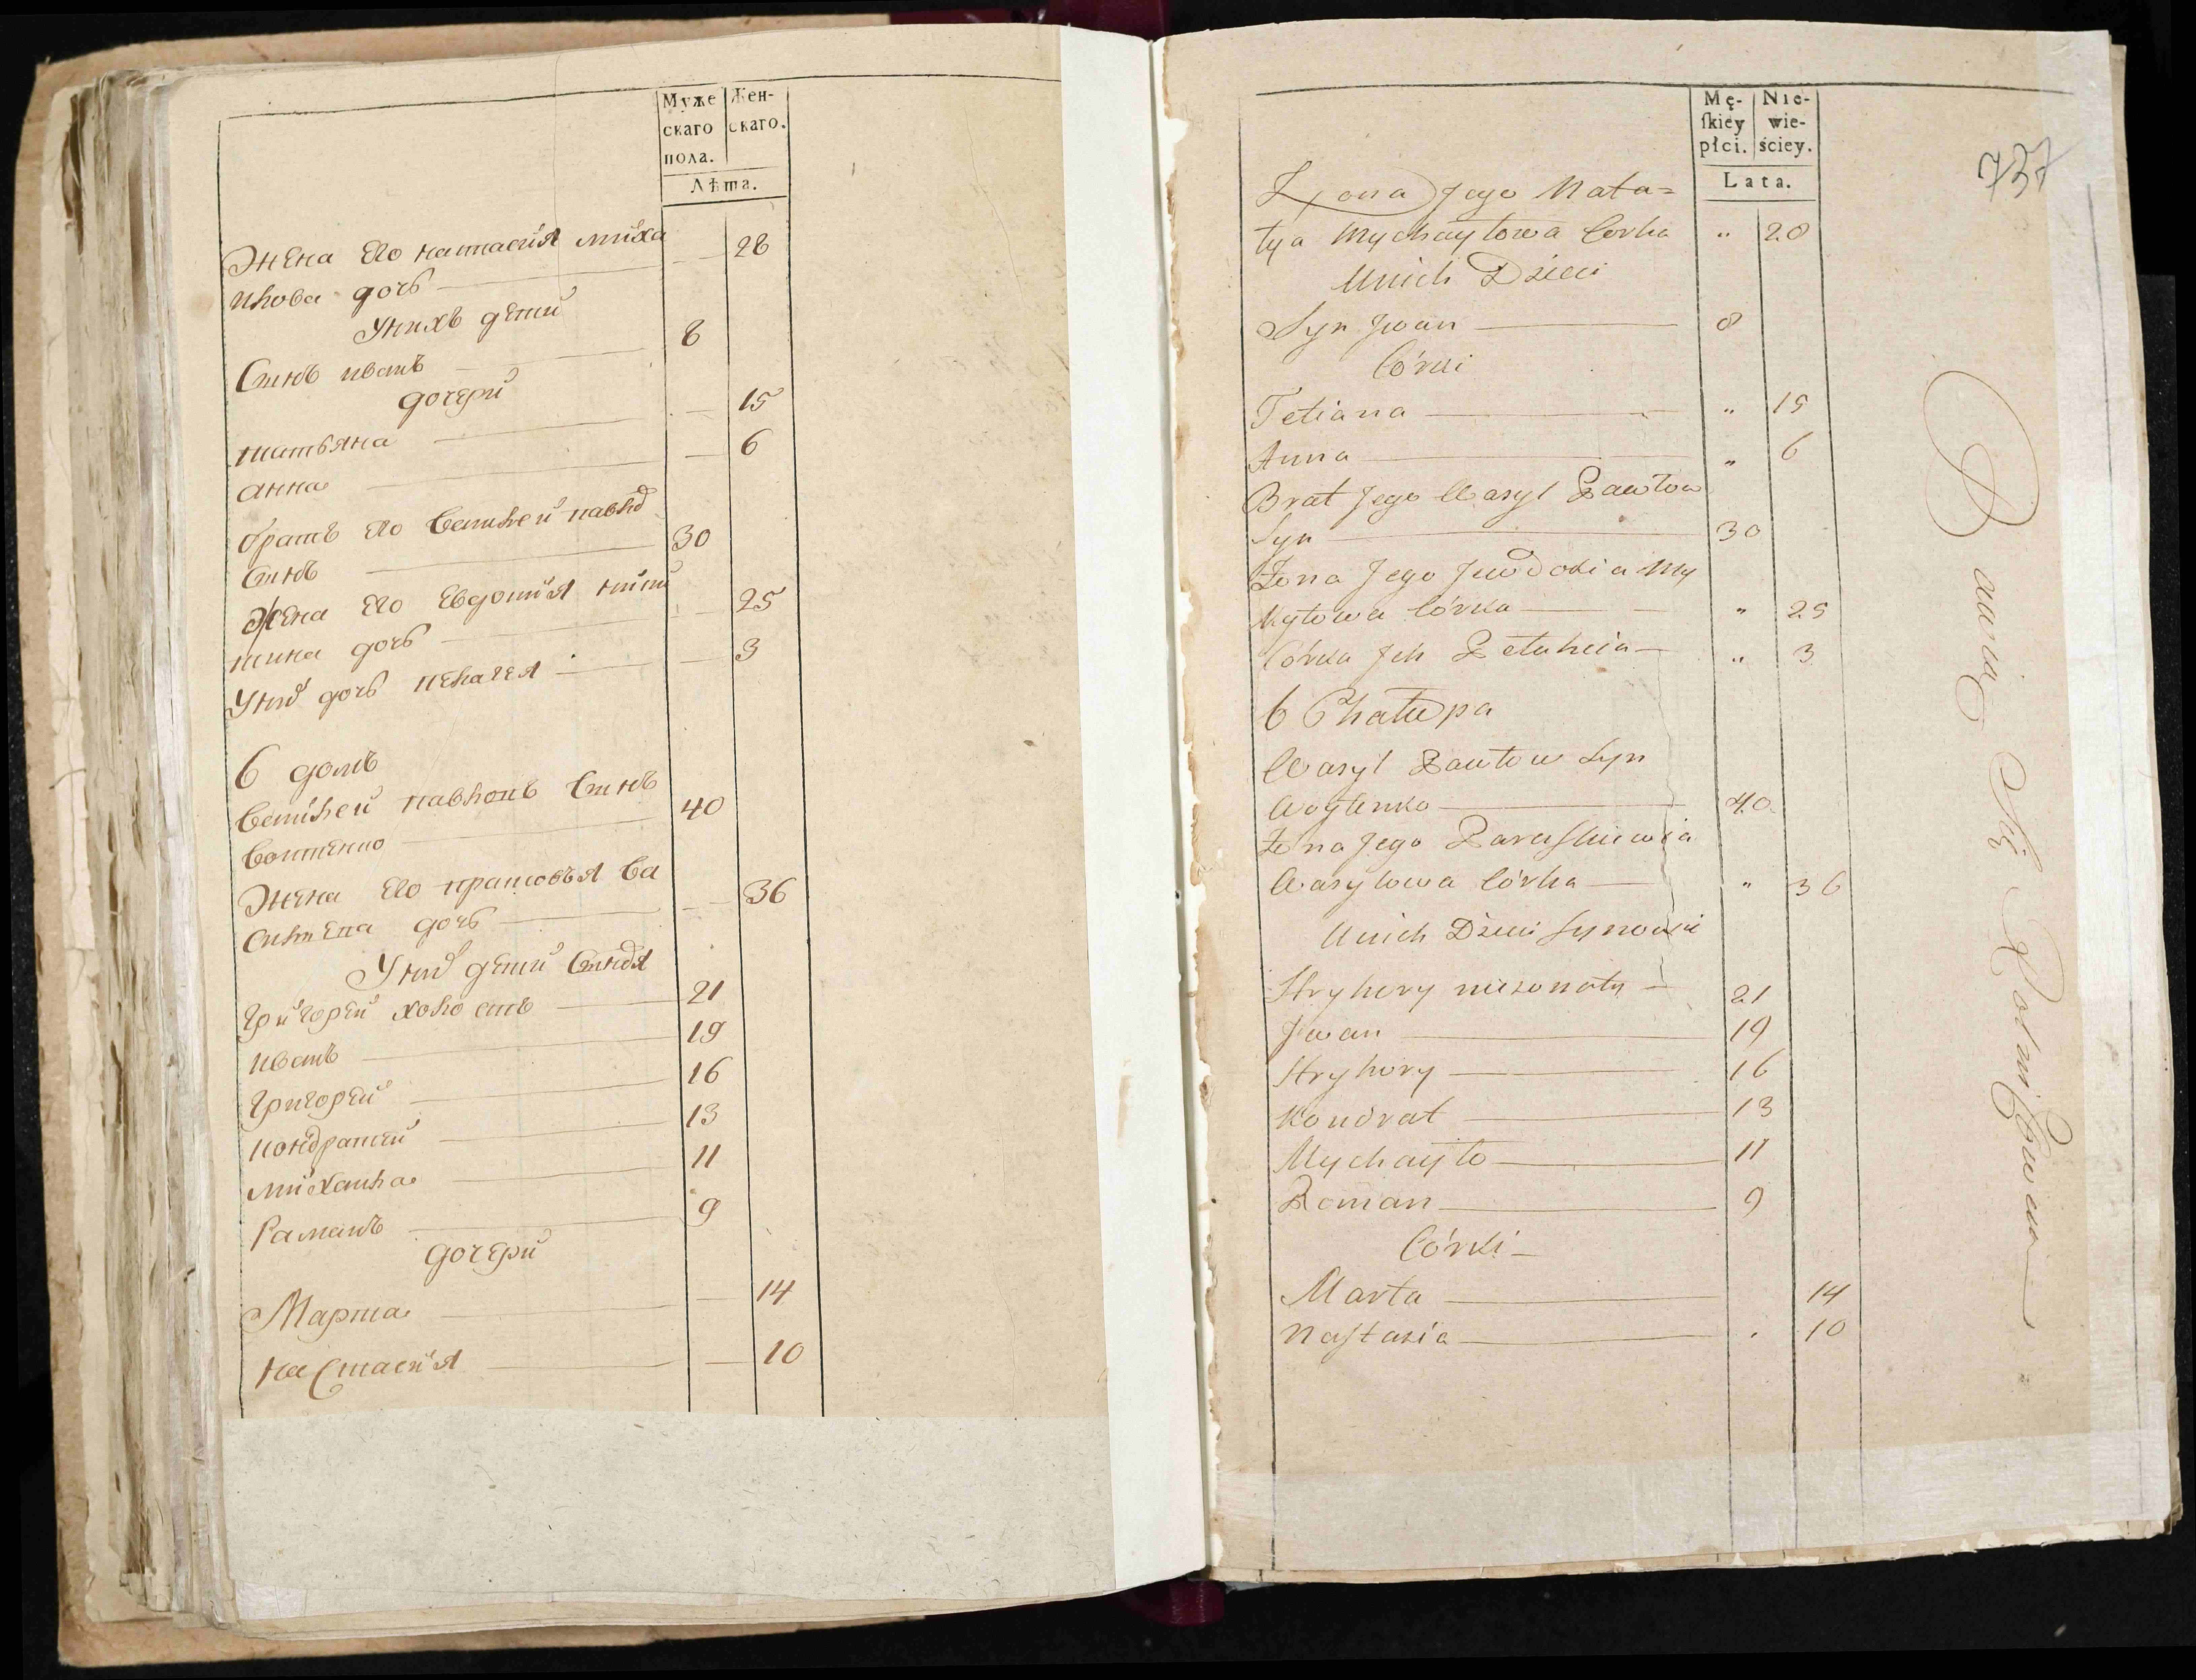 Муже Жен-
скаго скаго.
пола.
Лѣта.
Жена Его наталія миха
йлова дочь 28
Унихъ дети
Сынъ иванъ 8
дочери
татьяна 15
анна 6
братъ Его василей павлов
Сынъ 30
Жена Его Евдокия ники
тина дочь 25
Уних дочь пелагея 3
6 домъ
василей павловъ Сынъ
воитенко 40
Жена Его прасковья ва
сильева дочь 36
Уних дети Синовя
григорей холостъ 21
иванъ 19
григорей 16
кондратей 13
михаила 11
Раманъ 9
дочери
Марта 14
настасия 10
Mę- Nie-
ſkiey wie-
płci. ściey.
Lata.
737
Żona Jego Nata=
lya Mychayłowa Corka " 28
Unich Dzieci
Syn Jwan 8
Córki
Tetiana " 15
Anna " 6
Brat Jego Wasyl Pawłow
Syn 30
Żona Jego Jewdokia My
kytowa Córka " 25
Córka Jch Pełaheia " 3
6 Chałupa
Wasyl Pawłow Syn
Woytenko 40
Żona Jego Paraſkiewia
Wasylowa Córka " 36
Unich Dzieci Synowie
Hryhory nieżonaty 21
Jwan 19
Hryhory 16
Kondrat 13
Mychayło 11
Roman 9
Córki
Marta 14
Naſtazia 10